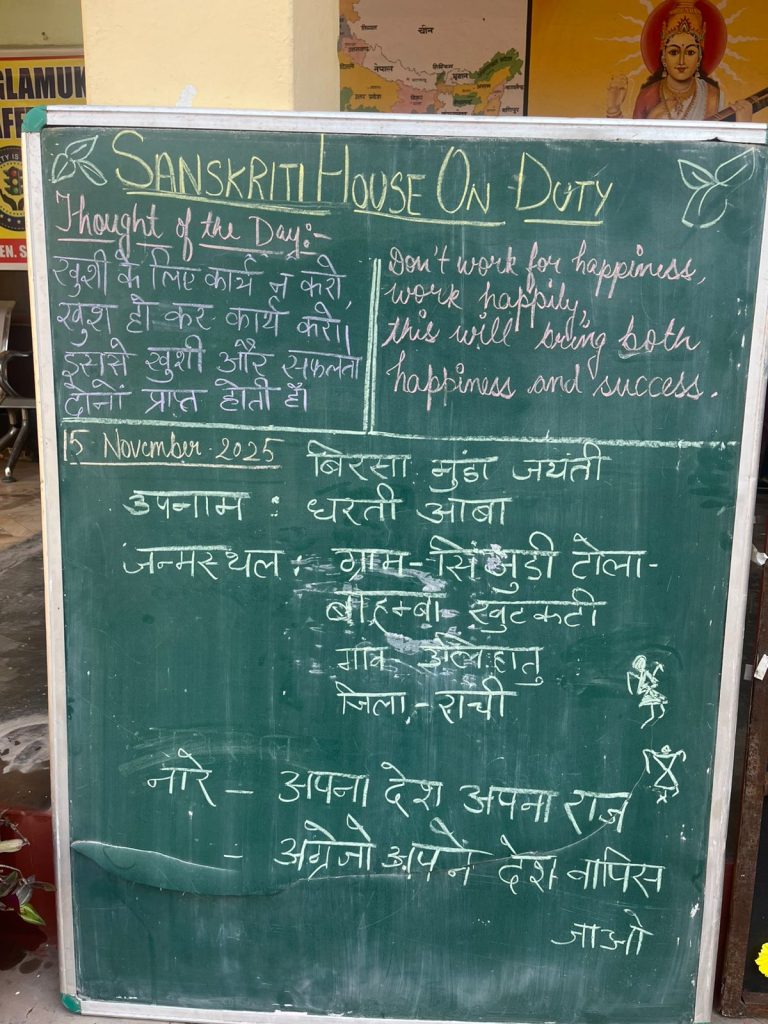 GLAMUK
चीन
नेपाल
भूटान
SANSKRITI HOUSE ON DUTY
Thought of the Day:-
खुशी के लिए कार्य न करो,
खुश हो कर कार्य करो।
इससे खुशी और सफलता
दोनों प्राप्त होती है।
Don't work for happiness,
work happily,
this will bring both
happiness and success.
15 November 2025
बिरसा मुंडा जयंती
उपनाम : धरती आबा
जन्मस्थल : ग्राम-सिंजुडी टोला-
खुटकटी
गाव
जिला,-राची
नारे - अपना देश अपना राज
- अग्रेजो अपने देश वापिस
जाओ